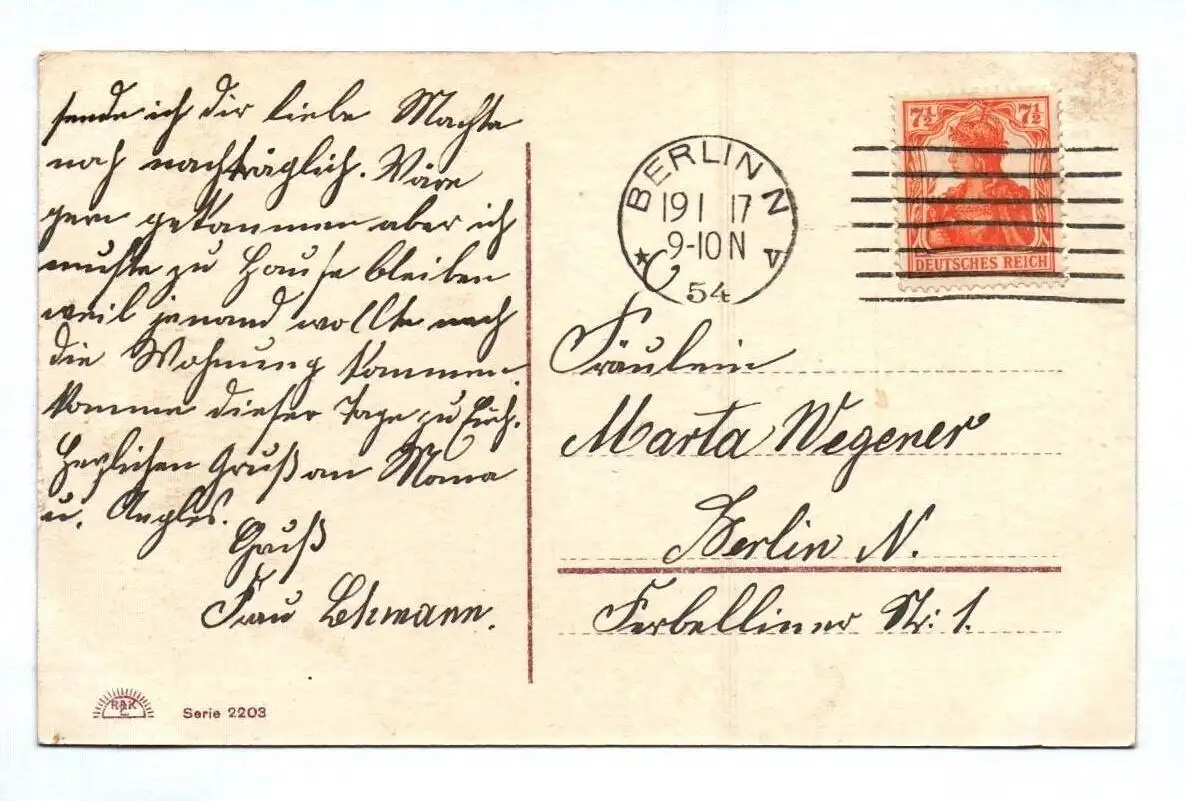 sende ich dir liebe Machta
noch nachträglich. Wäre
gern gekommen aber ich
mußte zu Hause bleiben
weil jemand wollte nach
die Wohnung kommen.
Komme dieser Tage zu Euch.
Herzlichen Gruß an Mama
u.
Gruß
Frau Lehmann.
R&K
L
Serie 2203
BERLIN N
19 1 17
9-10 N
★ 54 v
7½ 7½
DEUTSCHES REICH
Fräulein
Marta Wegener
Berlin N.
Ferbelliner Str: 1.